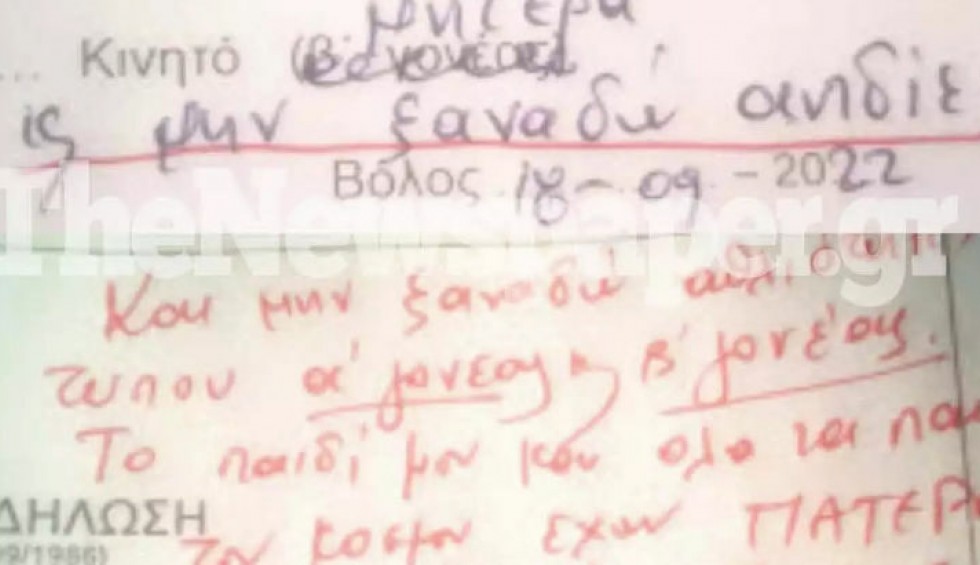 μητέρα
... Κινητό (Β' γονέας)
ις μην ξαναδώ αηδίε
Βόλος 18-09-2022
TheNewspaper.gr
Και μην ξαναδώ
τυπου α' γονέας κ β' γονέας.
Το παιδί μου και ολα τα παι
ΔΗΛΩΣΗ
του κοσμου εχουν ΠΑΤΕΡ
9/1986)